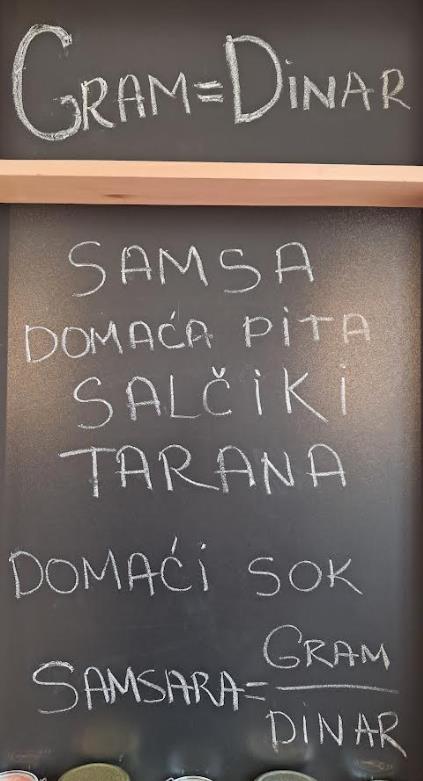 GRAM=DiNAR
SAMSA
DOMAĆA PiTA
SALČiKi
TARANA
DOMAĆi SOK
SAMSARA=GRAM
DiNAR